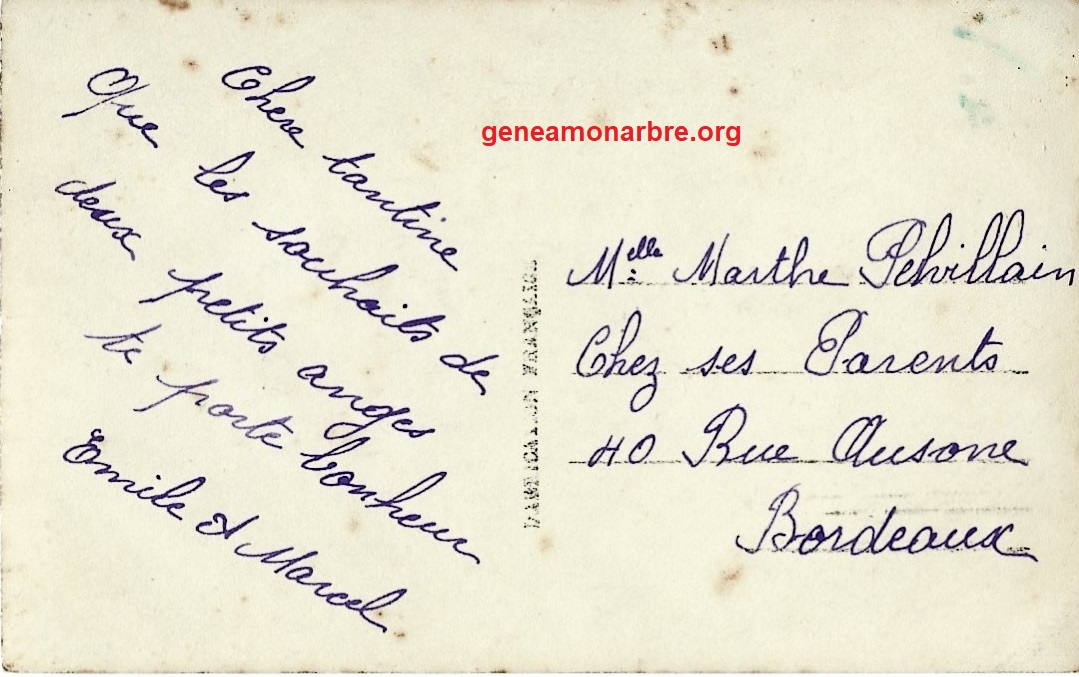 Chere tantine
Que les souhaits de
deux petits anges
te porte bonheur
Emile et Marcel
geneamonarbre.org
FABRICATION FRANÇAISE
Melle Marthe Pehvillain
Chez ses Parents
40 Rue Ausone
Bordeaux